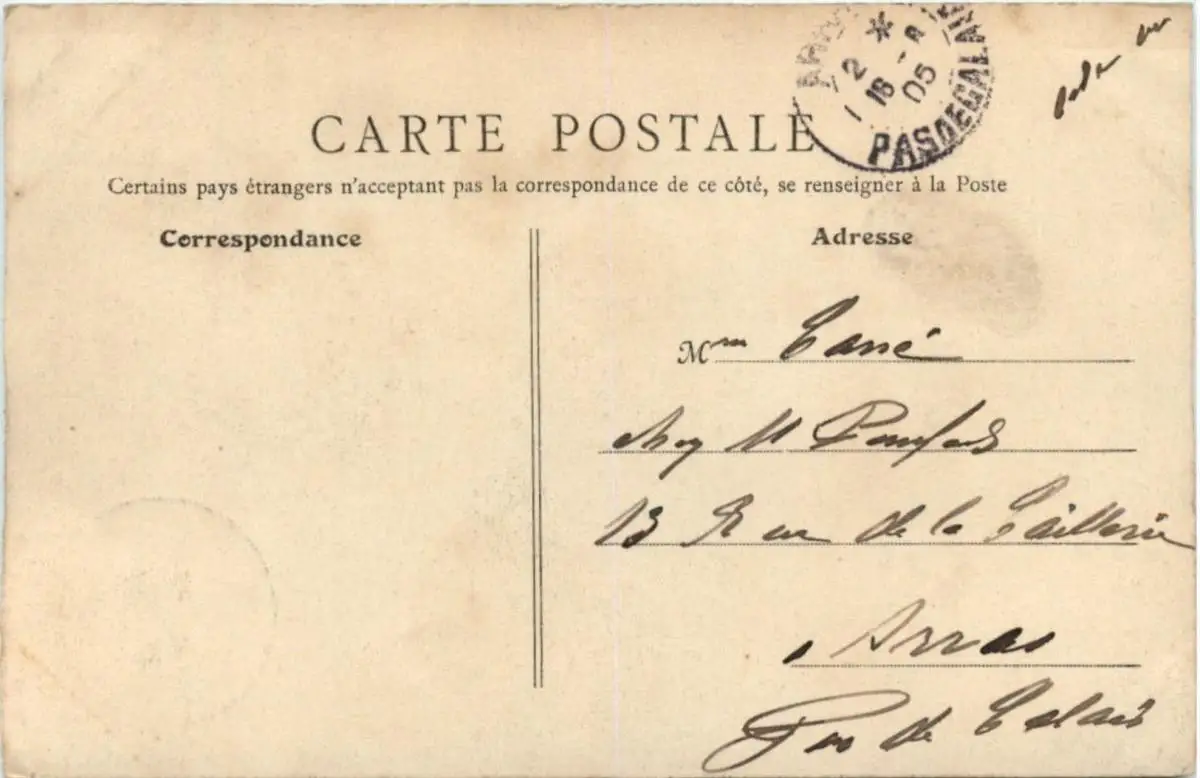 CARTE POSTALE
Certains pays étrangers n'acceptant pas la correspondance de ce côté, se renseigner à la Poste
Correspondance
Adresse
2 *
18 - 05
PAS DE CALAIS
Mme
chez M
13 Rue de la Taillerie
Arras
Pas de Calais